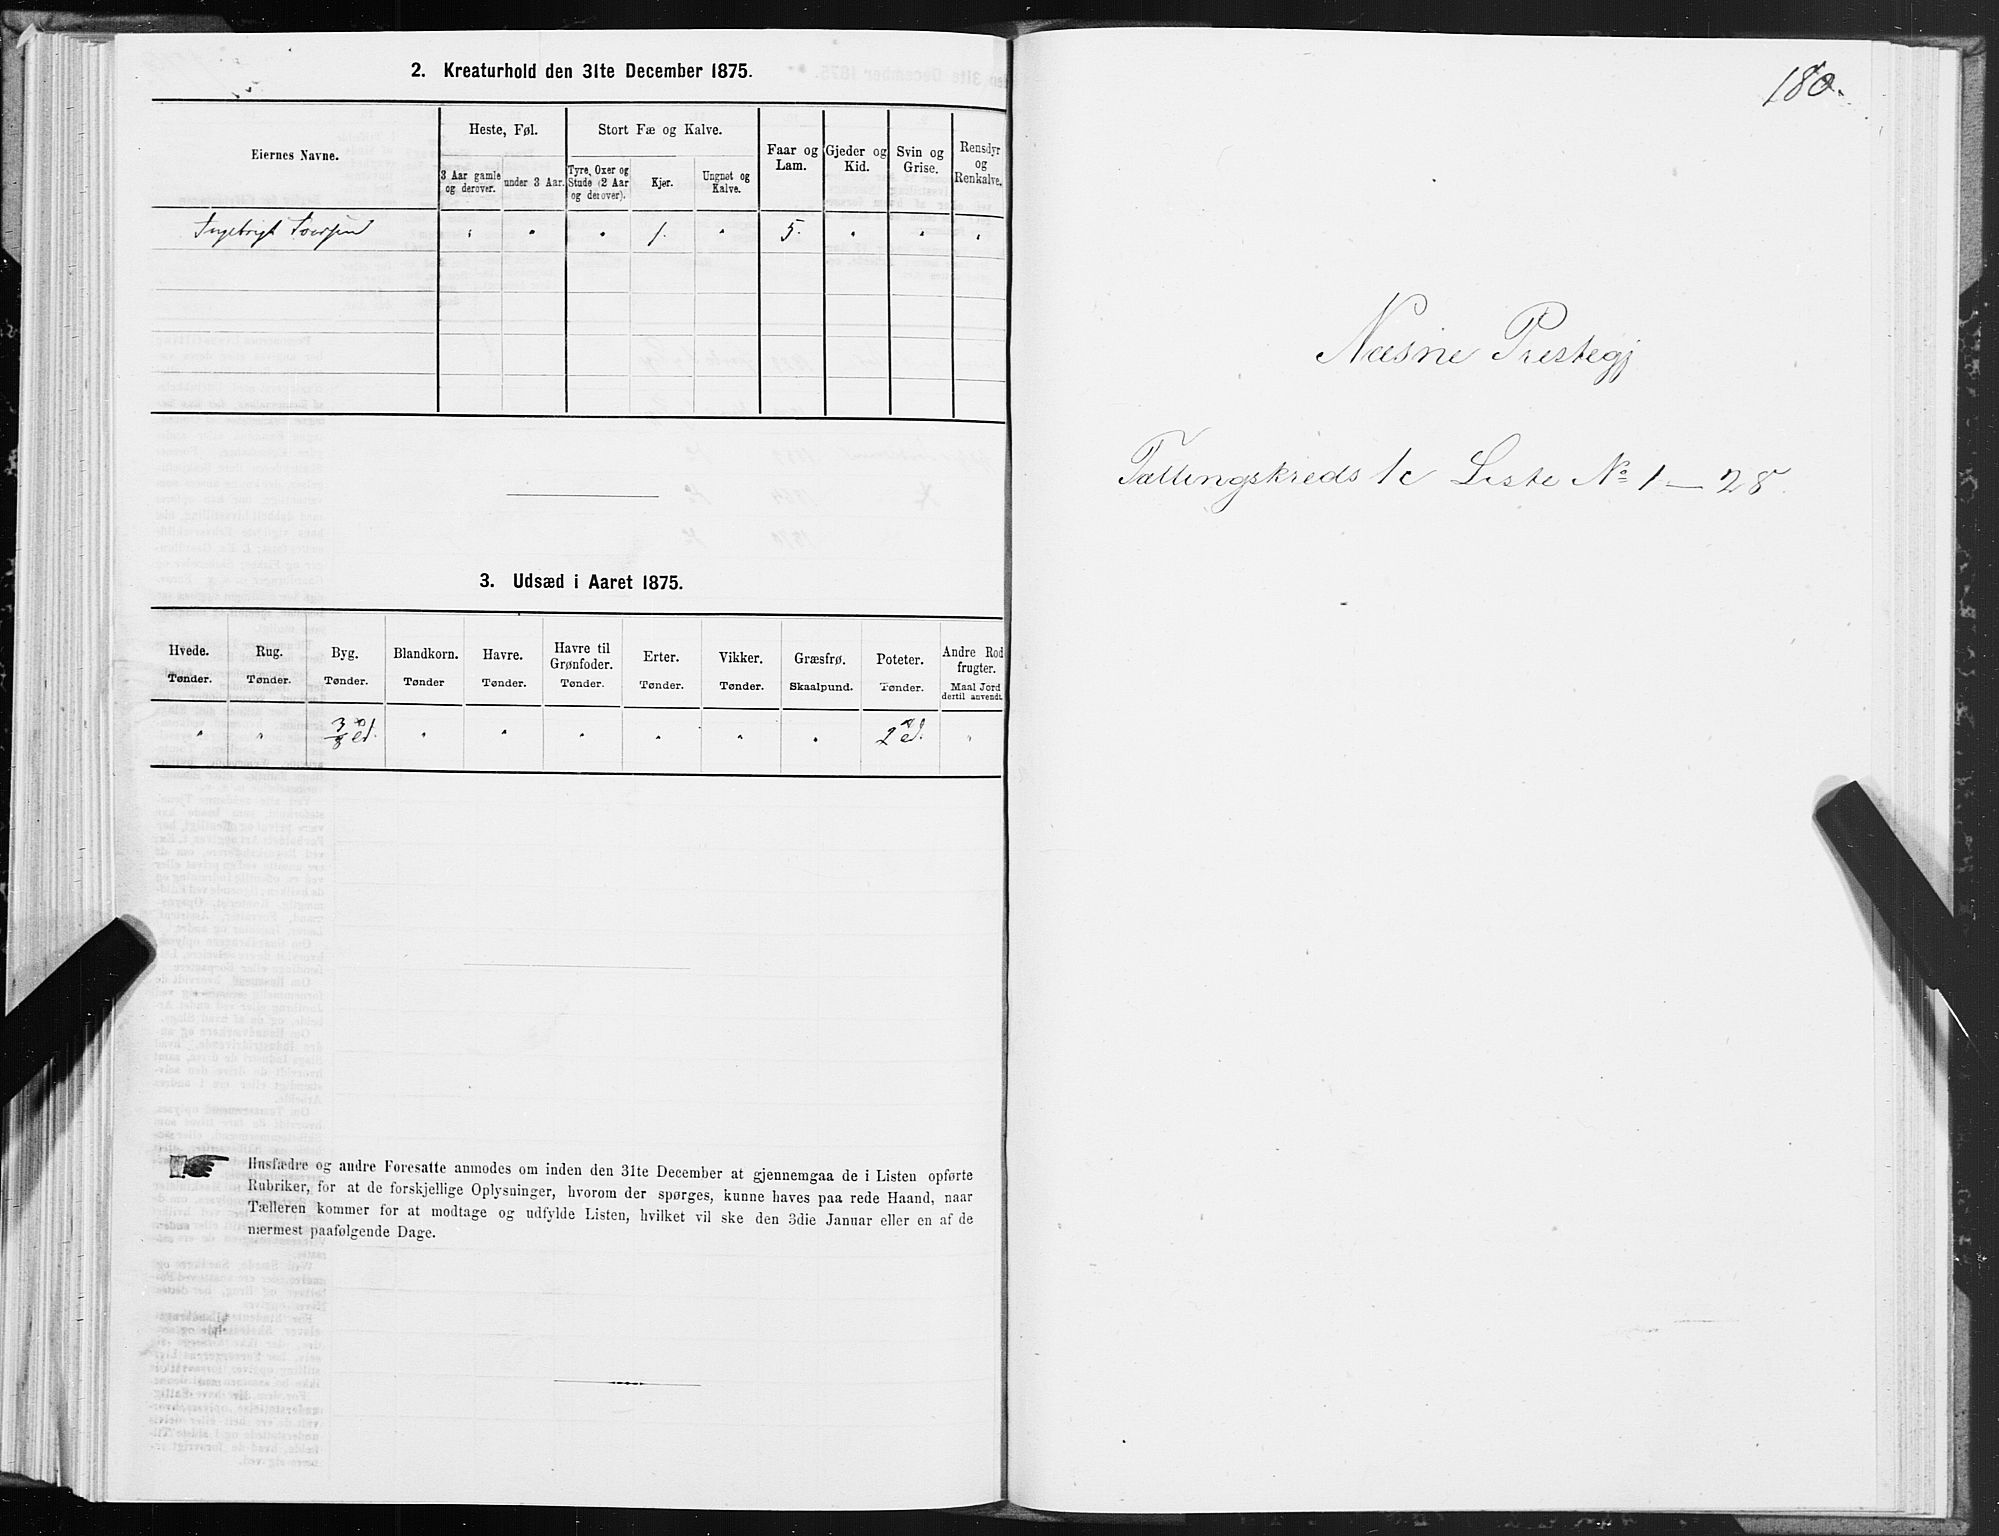 2. Kreaturhold den 31te December 1875.
Eiernes Navne.
Heste, Føl.
Stort Fæ og Kalve.
Faar og Lam.
Gjeder og Kid.
Svin og Grise.
Rensdyr og Renkalve.
3 Aar gamle og derover.
under 3 Aar.
Tyre, Oxer og Stude (2 Aar og derover).
Kjør.
Ungnøt og Kalve.
Ingebrigt " " " 1. " 5. " " "
3. Udsæd i Aaret 1875.
Hvede. Rug. Byg. Blandkorn. Havre. Havre til Grønfoder. Erter. Vikker. Græsfrø. Poteter. Andre Rodfrugter.
Tønder. Tønder. Tønder. Tønder Tønder. Tønder. Tønder. Tønder. Skaalpund. Tønder. Maal Jord dertil anvendt.
" " 3/8 " " " " " " 2 "
Husfædre og andre Foresatte anmodes om inden den 31te December at gjennemgaa de i Listen opførte
Rubriker, for at de forskjellige Oplysninger, hvorom der spørges, kunne haves paa rede Haand, naar
Tælleren kommer for at modtage og udfylde Listen, hvilket vil ske den 3die Januar eller en af de
nærmest paafølgende Dage.
180.
Næsne Prestegj
Tællingskreds 1c Liste No 1 — 28.